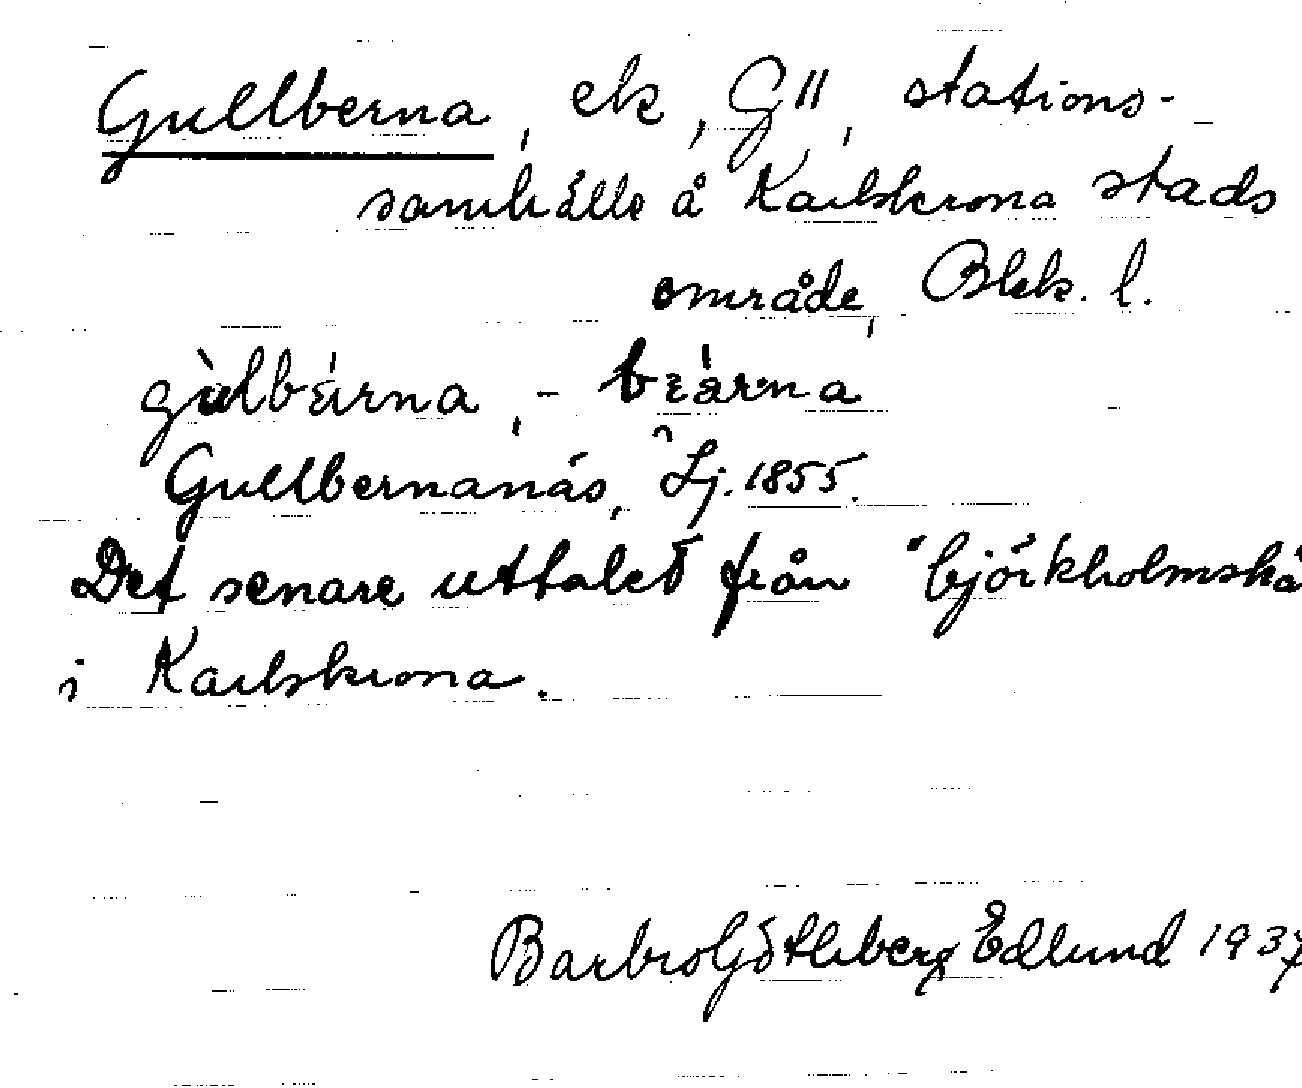 Gullberna, ek, G11, stations-
samhälle å Karlskrona stads
område, Blek. l.
gùlbǽrna, - bɛárna
Gullbernanäs, Lj. 1855.
Det senare uttalet från "björkholmskä
i Karlskrona.
Barbro Götliberg Edlund 1937